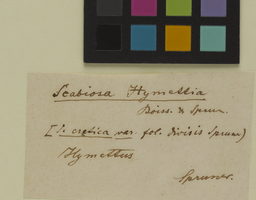 Scabiosa Hymettia
Boiss. & Sprun.
[S. cretica var. fol. divisis Spruner)
Hymettus
Spruner.